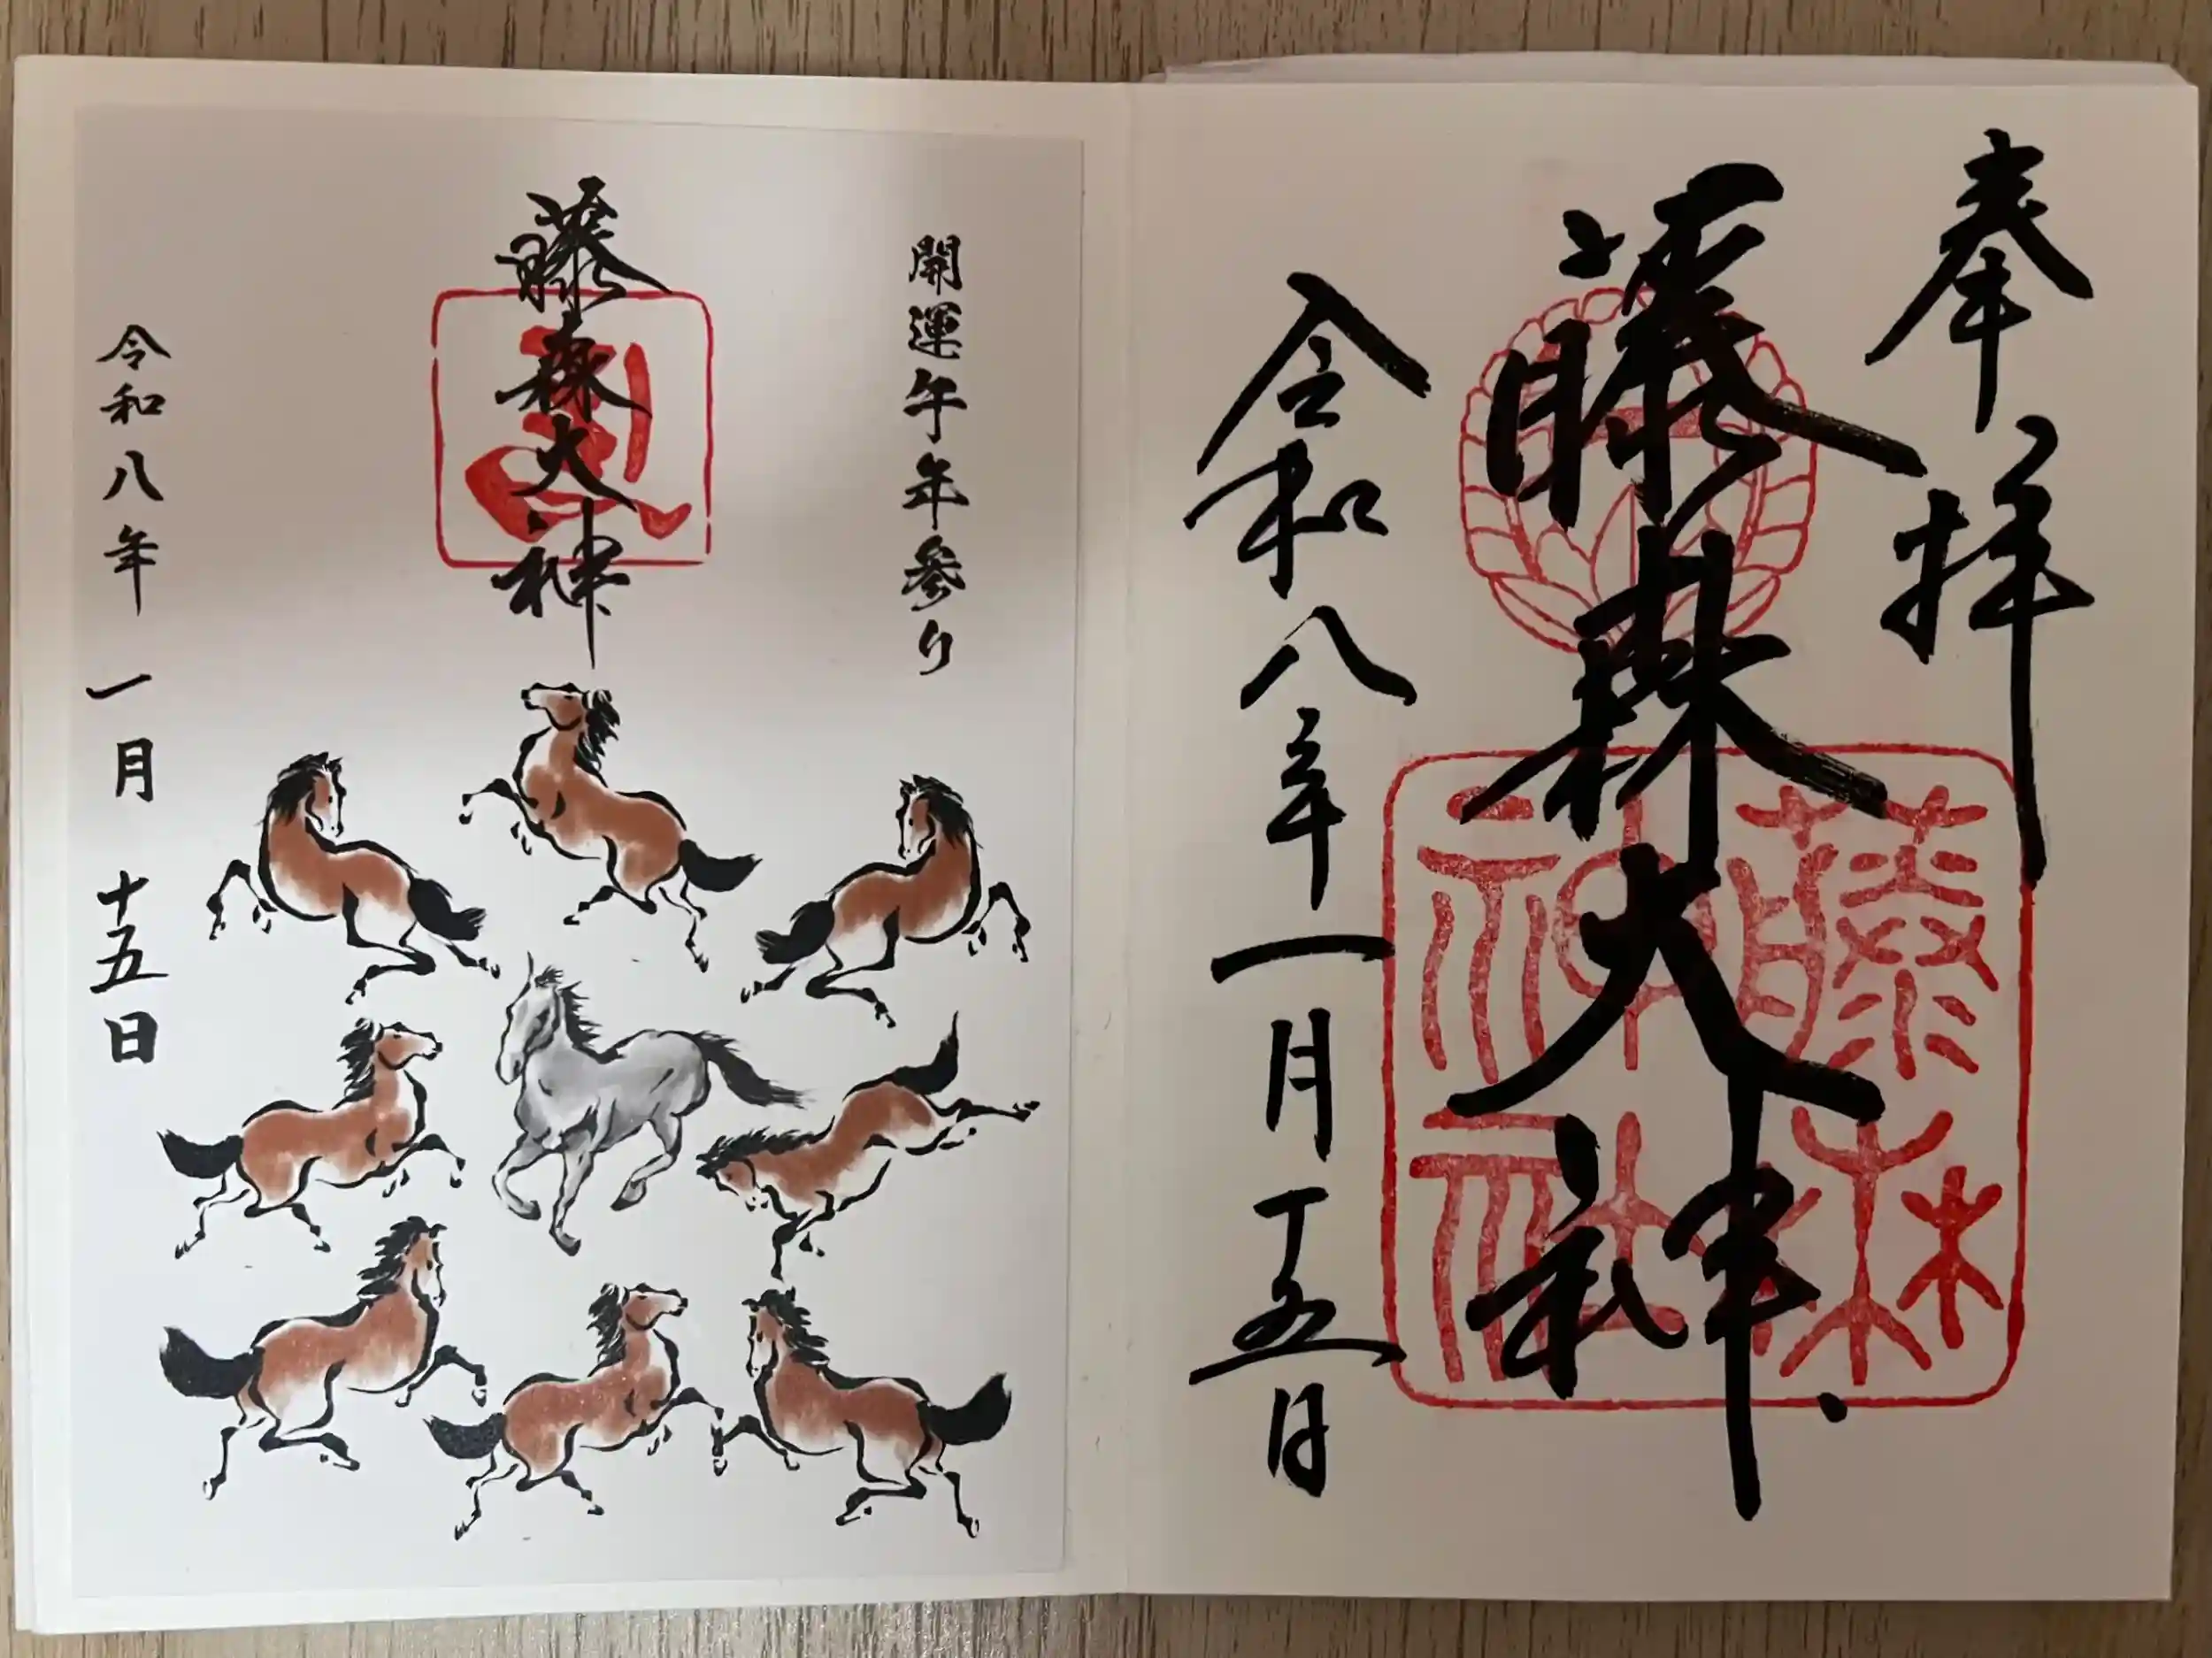 奉拝
藤森大神
藤森神社
令和八年一月十五日
開運午年参り
藤森大神
令和八年 一月 十五日